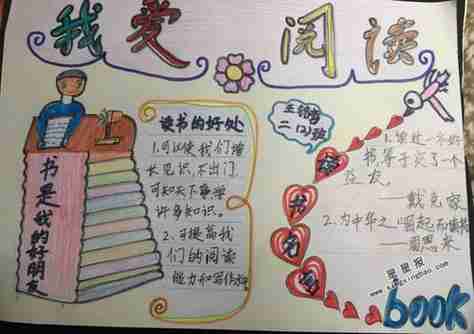 我爱阅读
书是我的好朋友
读书的好处
1.可以使我们增
长见识,不出门
可知天下事学
许多知识。
2.可提高我
们的阅读
能力和写作
二(2)班
读书名
1.读过一本好
书等于交了一个
益友。
克家
2.为中华之崛起而读书
——周恩来
book
星星报